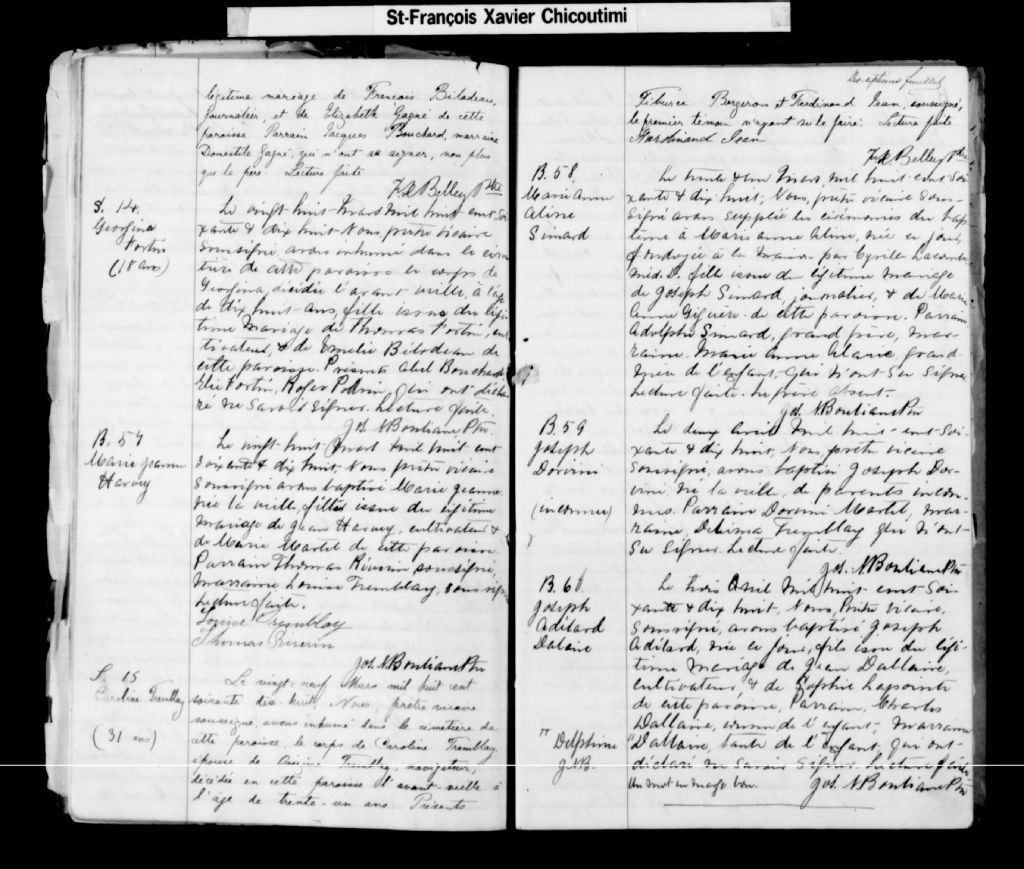 St-François Xavier Chicoutimi
légitime mariage de Francois Bilodeau,
journalier, et de Elizabeth Gagné de cette
paroisse Parrain Jacques Bouchard, marraine
Domestile Gagné, qui n'ont su signer, non plus
que le père. Lecture faite
F.X. Belley Ptre
S. 14.
Georgina
Fortin
(18 ans)
Le vingt-huit Mars mil huit cent soi
xante & dix huit Nous prêtre vicaire
soussigné avons inhumé dans le cime
tière de cette paroisse le corps de
Georgina décédée l'avant veille, à l'age
de dix huit ans, fille issue du légi
time mariage de Thomas Fortin, cul
tivateur, & de Emélie Bilodeau de
cette paroisse. Présents Abel Bouchard
Elie Fortin, Roger Potvin, qui ont décla
ré ne savoir signer. Lecture faite.
Jos. N Boulianne Ptre
B. 57
Marie Jeanne
Harvey
Le vingt-huit Mars mil huit cent
soixante & dix huit, Nous prêtre vicaire
soussigné avons baptisé Marie Jeanne
née la veille, fille issue du légitime
mariage de Jean Harvey, cultivateur &
de Marie Martel de cette paroisse.
Parrain Thomas Riverin soussigné,
marraine Louise Tremblay, soussignée
Lecture faite.
Louise Tremblay
Thomas Riverin
Jos. N Boulianne Ptre
S. 15
Caroline Tremblay
(31 ans)
Le vingt-neuf Mars mil huit cent
soixante dix huit, Nous, prêtre vicaire
soussigné, avons inhumé dans le cimetière de
cette paroisse, le corps de Caroline Tremblay,
épouse de Onésime Tremblay, navigateur,
décédée en cette paroisse l'avant-veille à
l'âge de trente-un ans. Présents
Dix septième feuillet
Tiburce Bergeron et Ferdinand Jean, soussigné,
le premier témoin n'ayant su le faire. Lecture faite
Ferdinand Jean
F.X. Belley Ptre
B. 58
Marie Anne
Aline
Simard
Le trente & un Mars, mil huit cent soi
xante & dix huit, Nous, prêtre vicaire sous-
signé avons supplée les cérémonies du bap
tême à Marie Anne Aline, née ce jour,
ondoyée à la maison par Cyrille Lacombe
Méd. D. fille issue du légitime mariage
de Joseph Simard, journalier, & de Marie
Anne Giguère de cette paroisse. Parrain
Adolphe Simard, grand père, mar-
raine Marie Anne Alarie, grand-
mère de l'enfant, qui n'ont su signer
Lecture faite. Le père absent.
Jos. N Boulianne Ptre
B. 59
Joseph
Dorvini
(inconnu)
Le deux Avril mil huit-cent soi-
xante & dix huit, Nous, prêtre vicaire
soussigné, avons baptisé Joseph Dor-
vini, né la veille, de parents incon-
nus. Parrain Dorvini Martel, mar-
raine, Délima Tremblay qui n'ont
su signer. Lecture faite.
Jos. N Boulianne Ptre
B. 60
Joseph
Adélard
Dalaire
Le trois Avril mil huit cent soi-
xante & dix huit, Nous, Prêtre vicaire,
soussigné, avons baptisé Joseph
Adélard, né ce jour, fils issu du légi-
time mariage de Jean Dallaire,
cultivateur, & de Sophie Lapointe
de cette paroisse, Parrain, Charles
Dallaire, cousin de l'enfant, Marraine
" Delphine
J.N.B.
" Dallaire, tante de l'enfant, qui ont
déclaré ne savoir signer. Lecture faite
Un mot en marge bon. Jos. N Boulianne Ptre